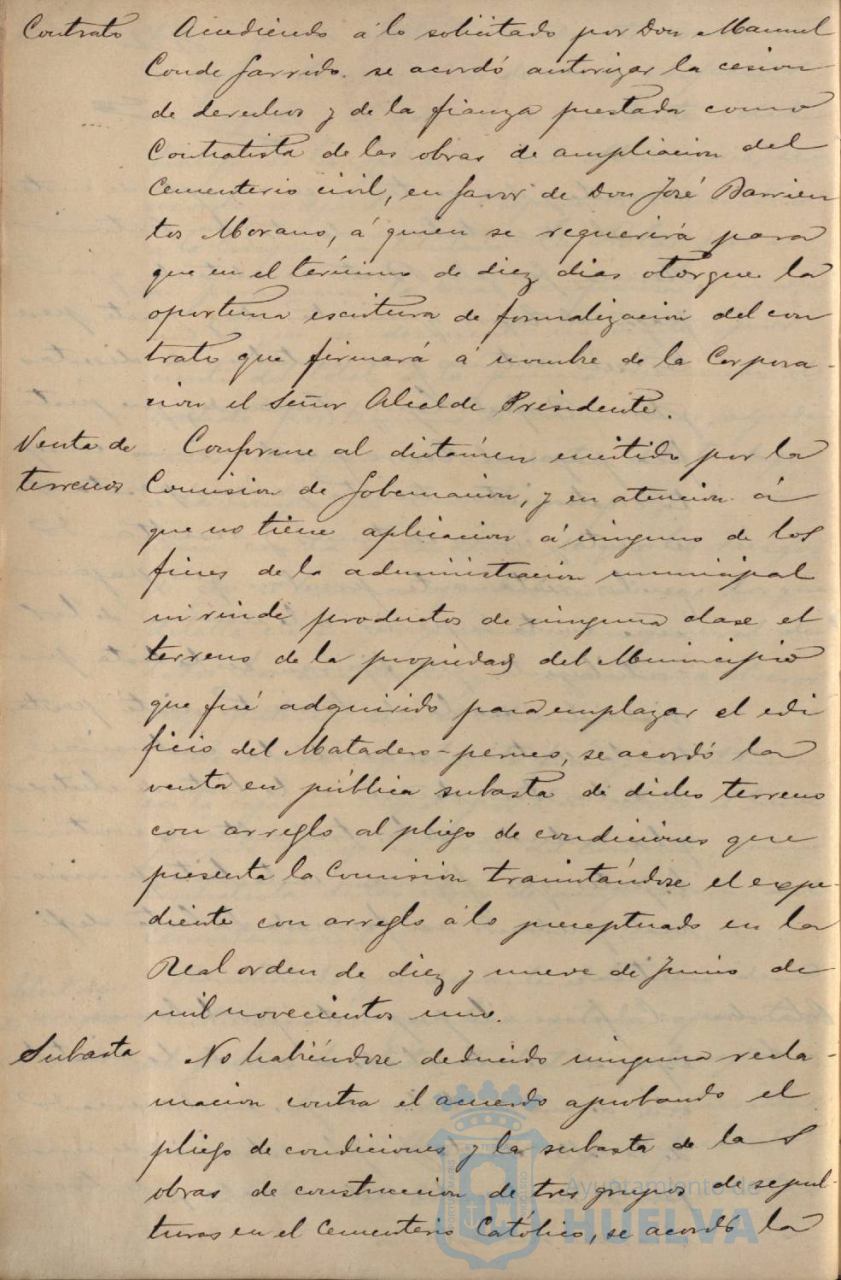 Contrato Accediendo á lo solicitado por Don Manuel
Conde Garrido. se acordó autorizar la cesion
de derechos y de la fianza prestada como
Contratista de las obras de ampliacion del
Cementerio civil, en favor de Don José Barrien
tos Morano, á quien se requerirá para
que en el término de diez dias otorgue la
oportuna escritura de formalizacion del con
trato que firmará á nombre de la Corpora-
cion el Señor Alcalde Presidente.
Venta de Conforme al dictámen emitido por la
terrenos Comision de Gobernacion, y en atencion á
que no tiene aplicacion á ninguno de los
fines de la administracion municipal
ni rinde productos de ninguna clase el
terreno de la propiedad del Municipio
que fué adquirido para emplazar el edi
ficio del Matadero-perneo, se acordó la
venta en pública subasta de dicho terreno
con arreglo al pliego de condiciones que
presenta la Comision tramitándose el expe-
diente con arreglo á lo preceptuado en la
Real orden de diez y nueve de Junio de
mil novecientos uno.
Subasta No habiéndose deducido ninguna recla-
macion contra el acuerdo aprobando el
pliego de condiciones y la subasta de las
obras de construccion de tres grupos de sepul-
turas en el Cementerio Católico, se acordó la
Ayuntamiento de
HUELVA